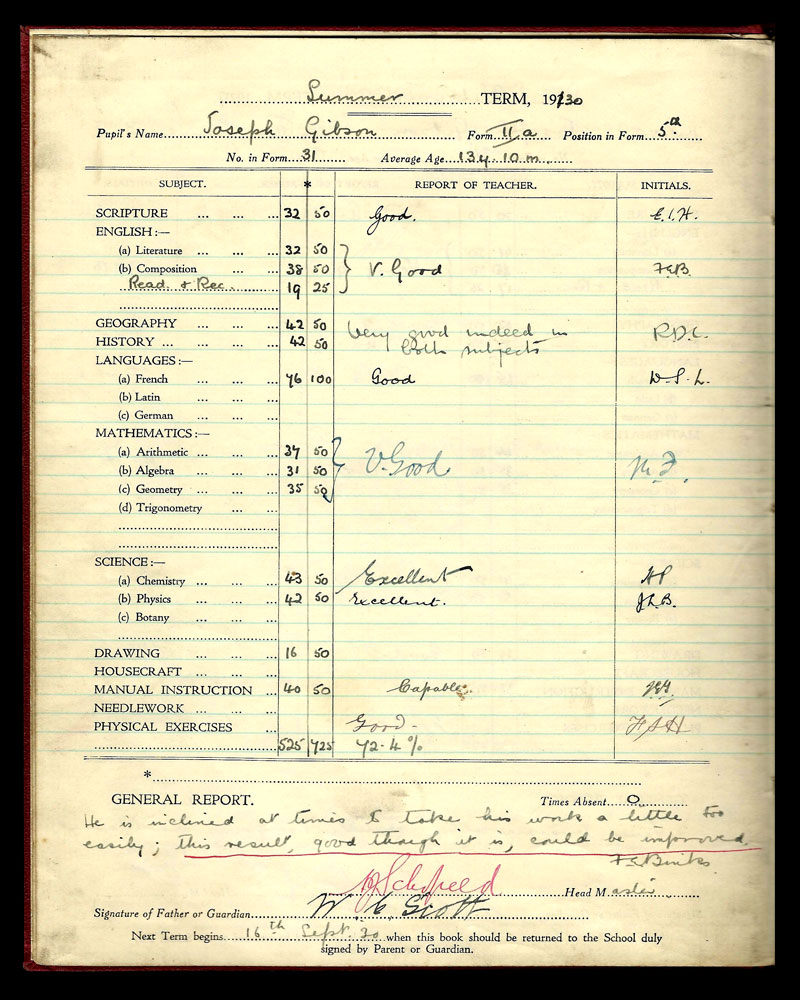 Summer TERM, 1930
Pupil's Name Joseph Gibson Form IIa Position in Form 5th
No. in Form 31 Average Age 13y. 10 m.
SUBJECT. * REPORT OF TEACHER. INITIALS.
SCRIPTURE ... ... ... 32 50 Good. E.I.H.
ENGLISH:—
(a) Literature ... ... ... 32 50
(b) Composition ... ... 38 50 V. Good F.E.B.
Read. & Rec. 19 25
GEOGRAPHY ... ... ... 42 50 Very good indeed in R.D.C.
HISTORY ... ... ... ... 42 50 both subjects
LANGUAGES:—
(a) French ... ... ... 76 100 Good D.S.L.
(b) Latin ... ... ...
(c) German ... ... ...
MATHEMATICS:—
(a) Arithmetic ... ... ... 37 50
(b) Algebra ... ... ... 31 50 V. Good M.F.
(c) Geometry ... ... ... 35 50
(d) Trigonometry ... ...
SCIENCE:—
(a) Chemistry ... ... ... 43 50 Excellent HP
(b) Physics ... ... ... 42 50 Excellent. J.L.B.
(c) Botany ... ... ...
DRAWING ... ... ... 16 50
HOUSECRAFT ... ... ...
MANUAL INSTRUCTION ... 40 50 Capable.
NEEDLEWORK ... ... ...
PHYSICAL EXERCISES ... Good - FSH
525 725 72.4%
*
GENERAL REPORT. Times Absent 0
He is inclined at times to take his work a little too
easily; this result, good though it is, could be improved.
F.E. Binks.
Schofield Head Master
Signature of Father or Guardian W. C. Scott
Next Term begins 16th Sept. 30 when this book should be returned to the School duly
signed by Parent or Guardian.